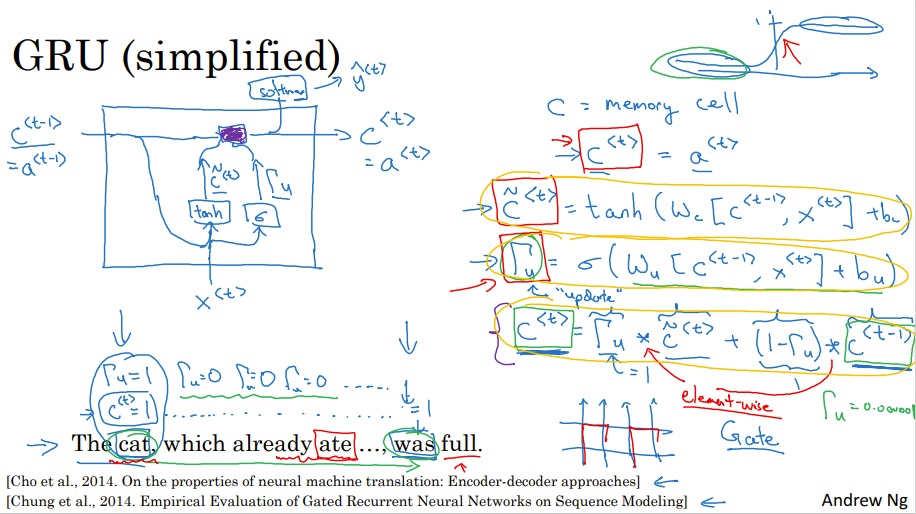 GRU (simplified)
softmax
ŷ<t>
c<t-1>
= a<t-1>
c<t>
= a<t>
c̃<t>
Γu
tanh
σ
x<t>
1
C = memory cell
c<t> = a<t>
c̃<t> = tanh (Wc [c<t-1>, x<t>] + bc)
Γu = σ (Wu [c<t-1>, x<t>] + bu)
"update"
c<t> = Γu * c̃<t> + (1-Γu) * c<t-1>
= 1
element-wise
Gate
Γu = 0.000001
Γu=1 Γu=0 Γu=0 Γu=0 .....
c<t>=1 ............ =1
The cat, which already ate …, was full.
[Cho et al., 2014. On the properties of neural machine translation: Encoder-decoder approaches]
[Chung et al., 2014. Empirical Evaluation of Gated Recurrent Neural Networks on Sequence Modeling]
Andrew Ng